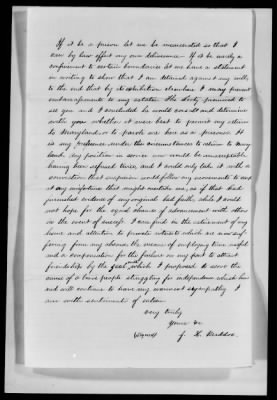 If it be a prison let me be incarcerated so that I
may by law effect my own deliverance. If it be merely a
confinement to certain boundaries let me have a statement
in writing to show that I am detained against my will,
to the end that by its exhibition elsewhere I may prevent
embarrassments to my estates. He kindly promised to
see you and I concluded he would consult and determine
with you whether it were best to permit my return
to Maryland, or to parole me here as a prisoner. It
is my preference under these circumstances to return to my
home. My position in service now would be unacceptable
having been refused twice, and I would only take it with a
conviction that suspicion would follow my movements to and
at any misfortune that might overtake us, as if that had
furnished evidence of my original bad faith, while I could
not hope for the equal chance of advancement with others
in the event of success. I can find in the retirement of my
home and attention to private interests which are now suf-
fering from my absence, the means of employing time useful
and a compensation for the failure on my part to attract
friendship by the zeal with which I proposed to serve the
cause of a brave people struggling for independence which has
and will continue to have my warmest sympathy. I
am with sentiments of esteem
very truly
Yours &c
(signed) J. H. Maddox